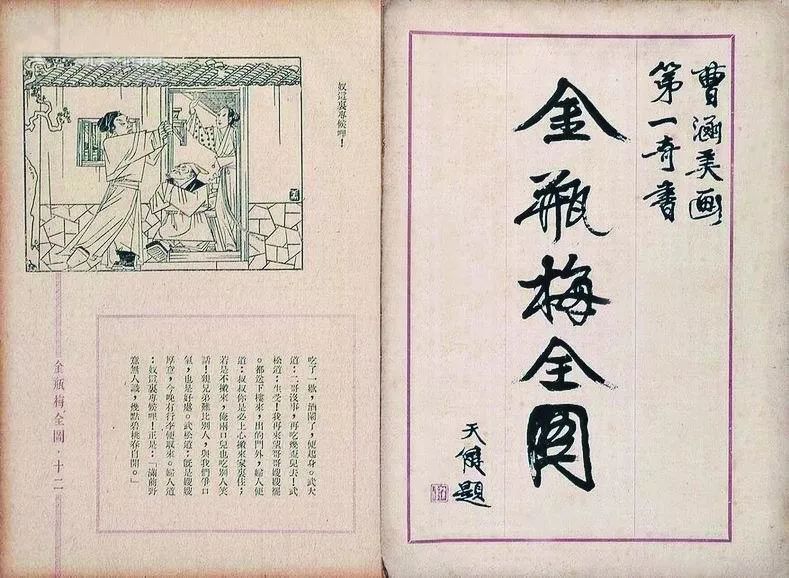 曹涵美画
第一奇書
金瓶梅全圖
天健題
奴這裏專候哩！
吃了一歇，酒闌了，便起身。武大
道：二哥沒事，再吃幾盃兒去！武
松道：生受！我再來望哥哥嫂嫂罷
。都送下樓來，出的門外，婦人便
道：叔叔你是必上心搬來家裏住；
若是不搬來，俺兩口兒也吃別人笑
話！親兄弟難比別人，與我們爭口
氣，也是好處。武松道：既是嫂嫂
厚意，今晚有行李便取來。婦人道
：奴這裏專候哩！正是：「滿前野
意無人識，幾點碧桃春自開。」
金瓶梅全圖．十二